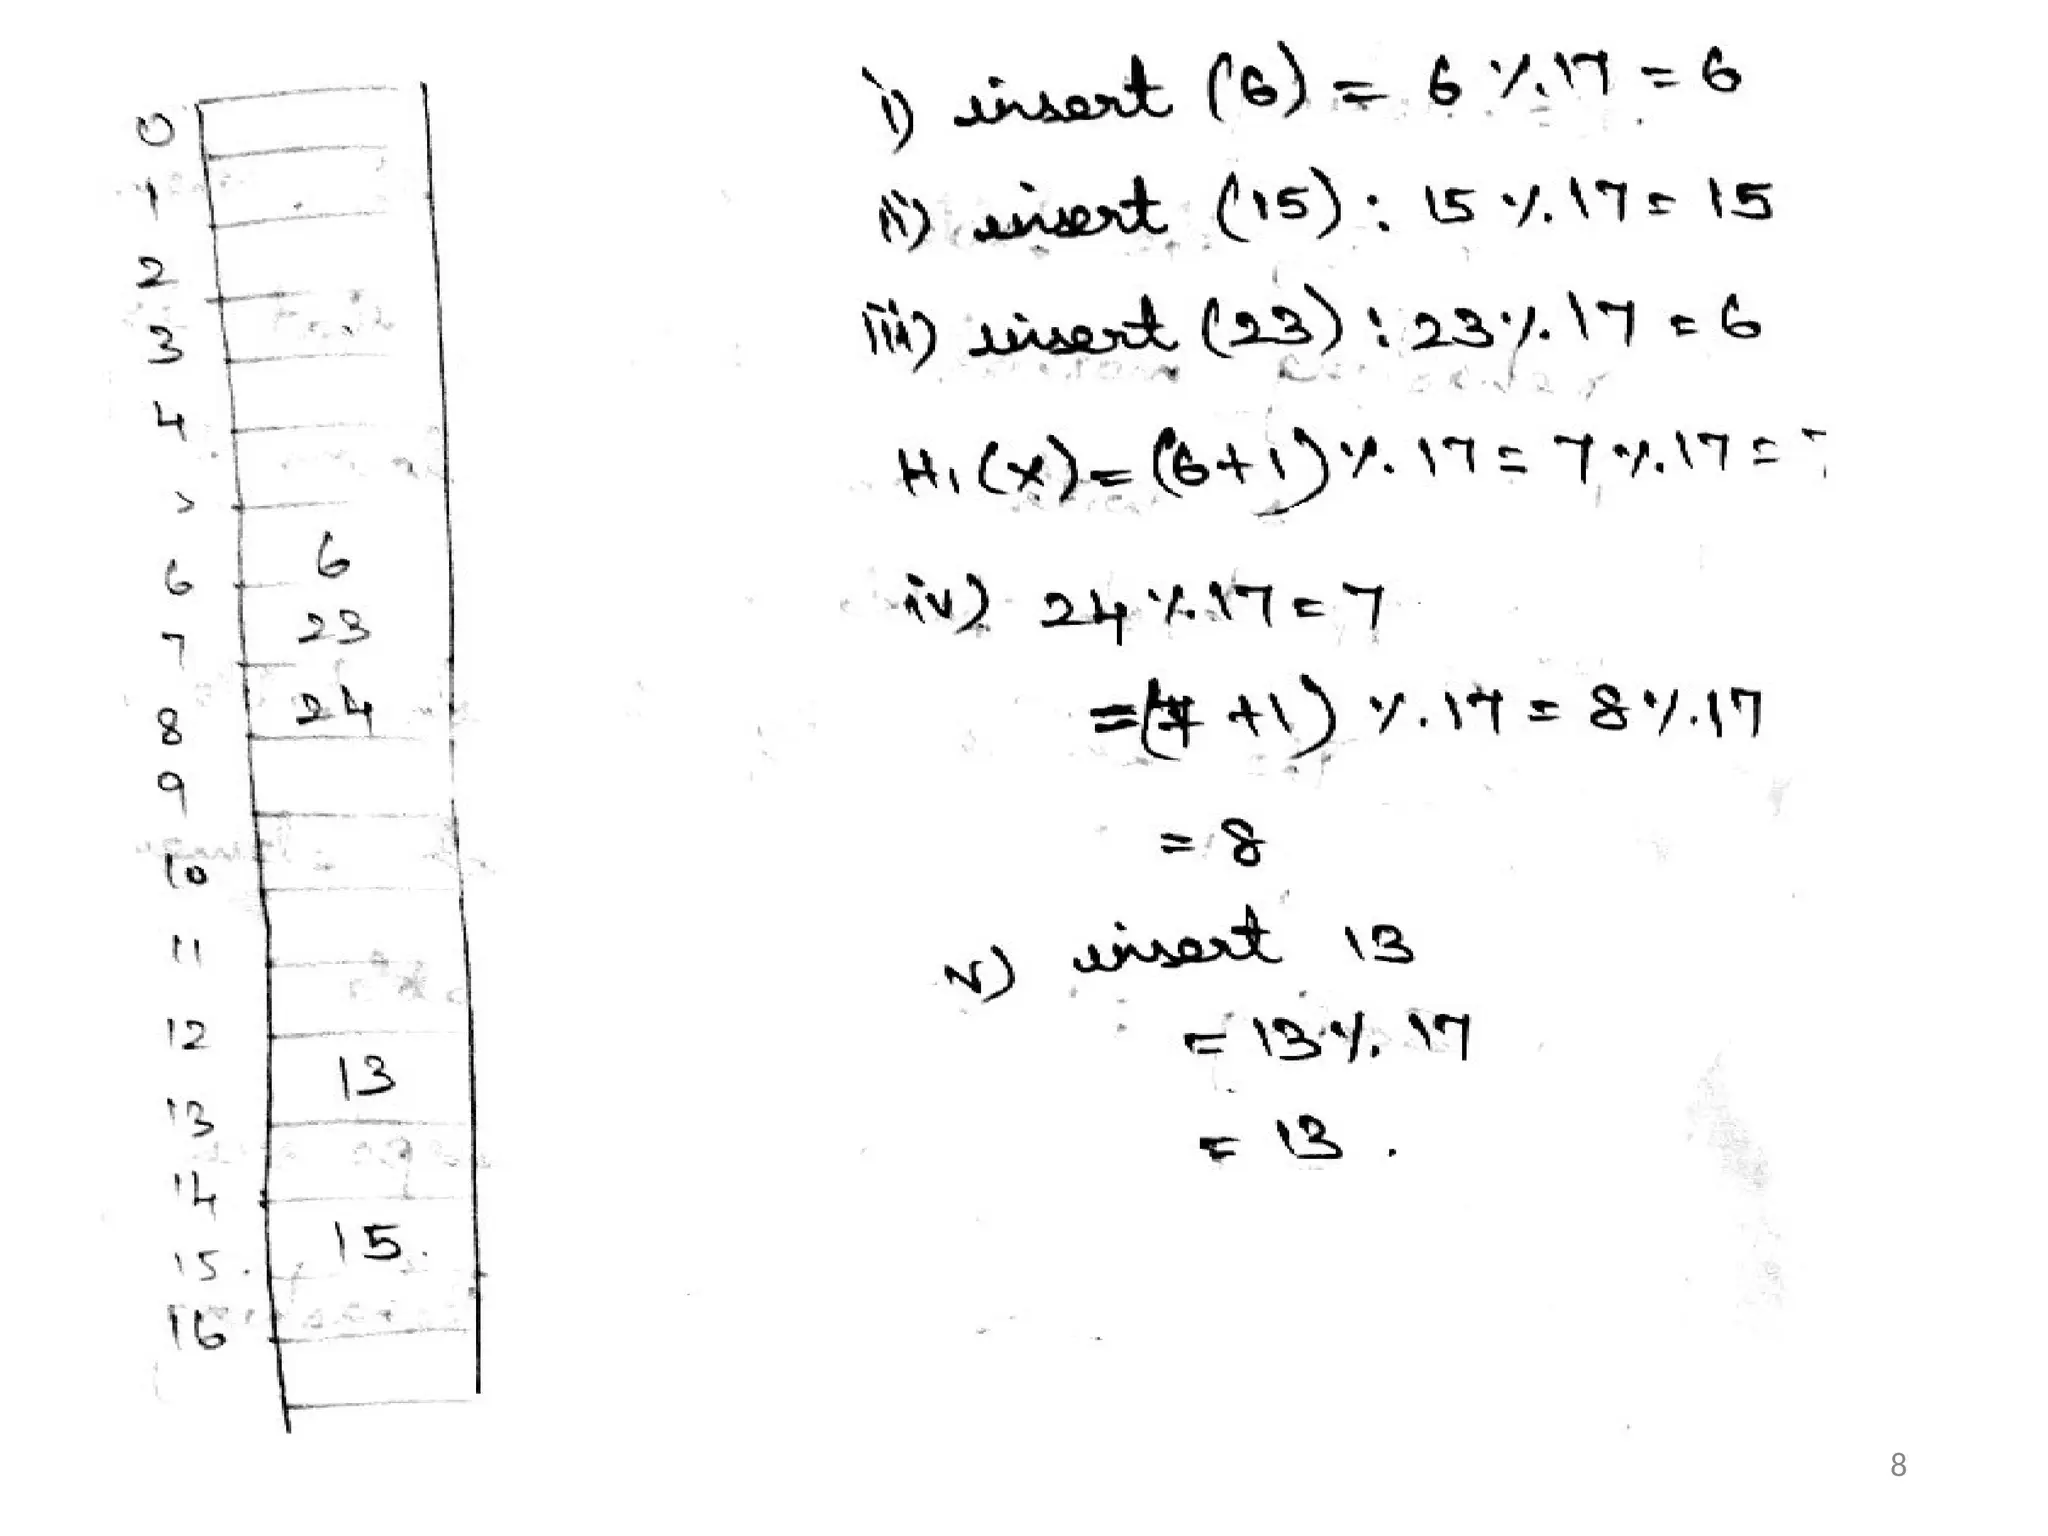 0
1
2
3
4
6 6
7 23
8 24
9
10
11
12
13 13
14
15. 15.
16
i) insert (6) = 6 % 17 = 6
ii) insert (15) : 15 % 17 = 15
iii) insert (23) : 23 % 17 = 6
H1(x) = (6+1) % 17 = 7 % 17 = 7
iv) 24 % 17 = 7
= (7 +1) % 17 = 8 % 17
= 8
v) insert 13
= 13 % 17
= 13 .
8